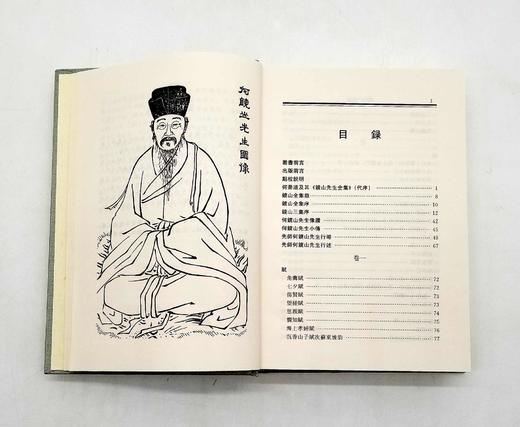 何鏡山先生圖像
1
目錄
叢書前言
出版前言
點校說明
何喬遠及其《鏡山先生全集》(代序) 1
鏡山全集題 8
鏡山全集序 10
鏡山三集序 12
何鏡山先生像讚 42
何鏡山先生小傳 45
先師何鏡山先生行略 46
先師何鏡山先生行述 67
卷一
賦
七夕賦 72
73
望賦 73
思親賦 74
75
海上孝婦賦 76
77